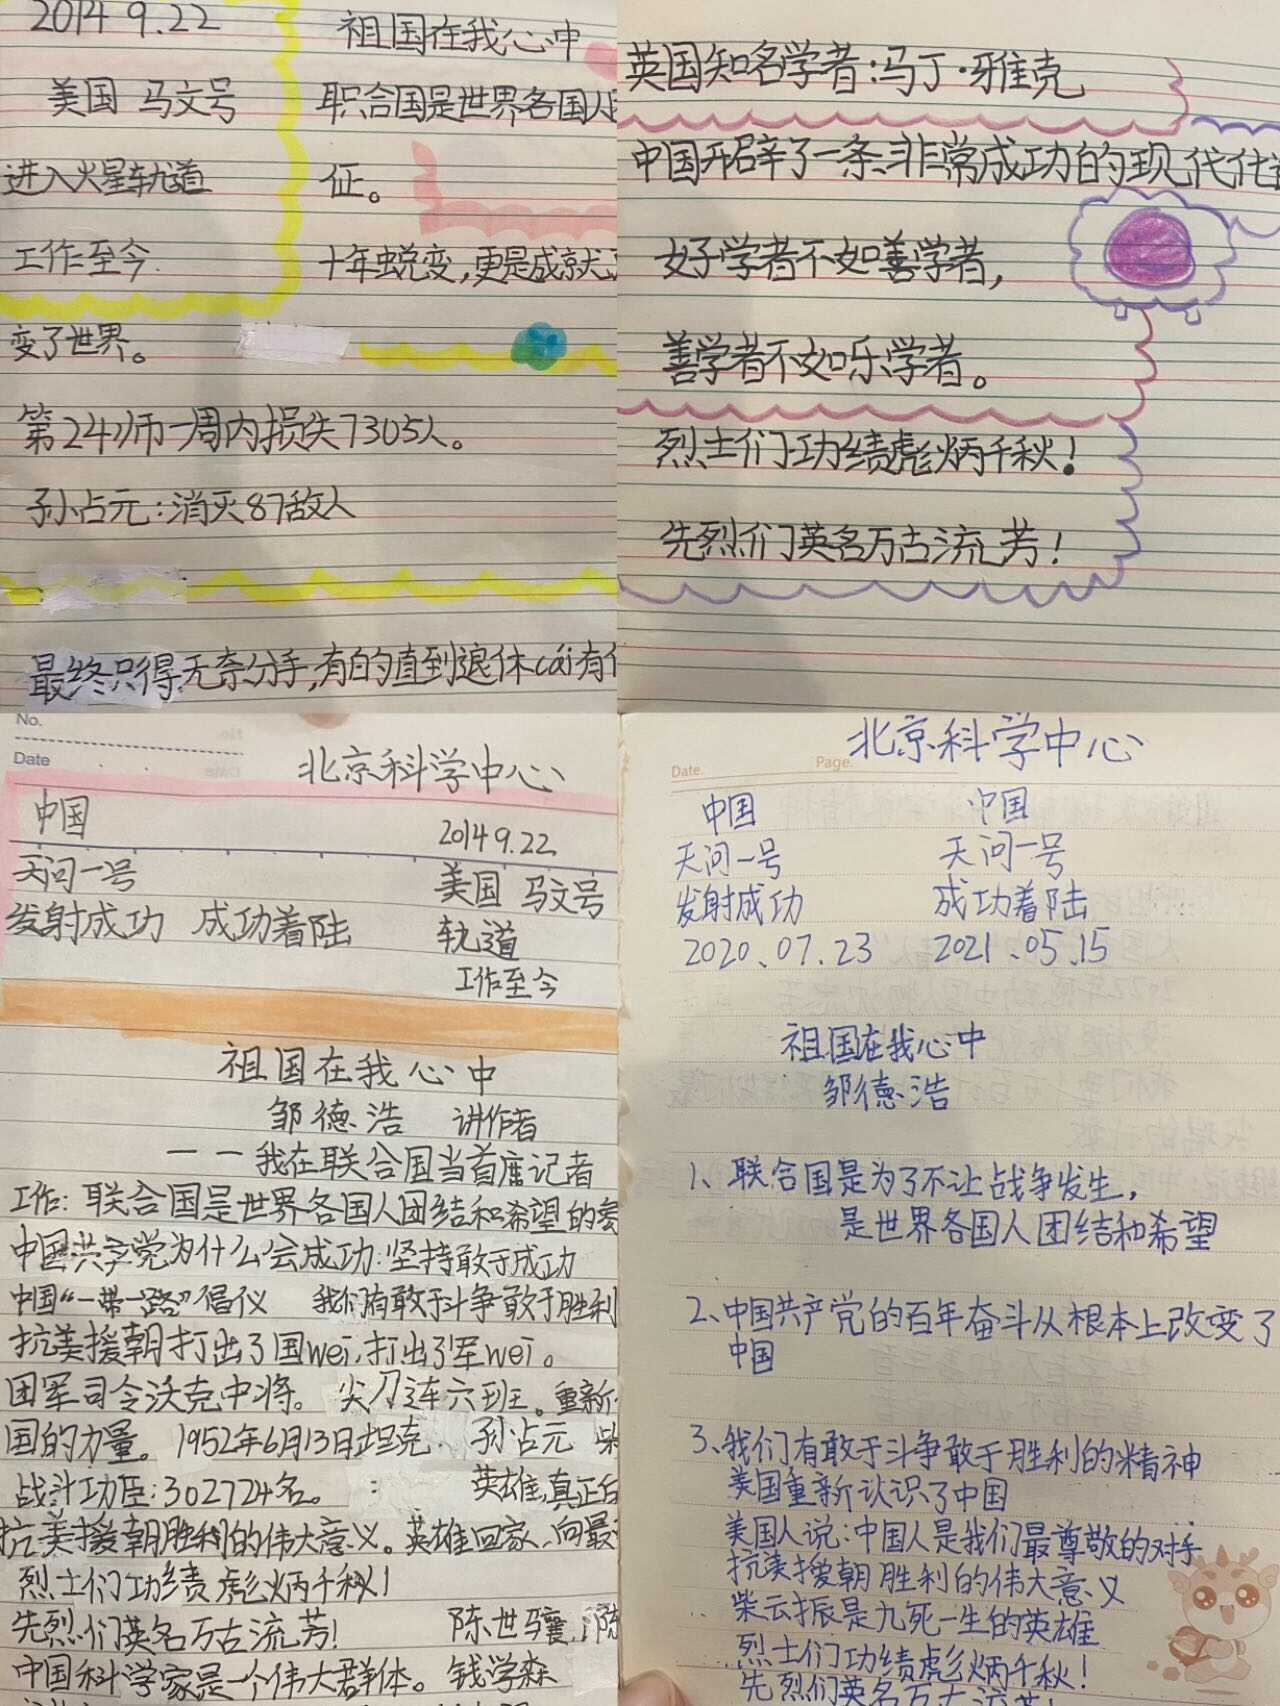 2014 9.22
祖国在我心中
美国 马文号
联合国是世界各国人
进入火星轨道
征。
工作至今.
十年蜕变,更是成就
变了世界。
第24师一周内损失7305人。
孙占元:消灭87敌人
最终只得无奈分手,有的直到退休cái有
英国知名学者:冯丁·雅克
中国开辟了一条非常成功的现代化
好学者不如善学者,
善学者不如乐学者。
烈士们功绩彪炳千秋!
先烈们英名万古流芳!
No.
Date
北京科学中心
中国
2014 9.22
天问一号
美国 马文号
发射成功 成功着陆
轨道
工作至今
祖国在我心中
邹德浩 讲作者
一一我在联合国当首席记者
工作:联合国是世界各国人团结和希望的
中国共产党为什么会成功:坚持敢于成功
中国“一带一路”倡仪 我们有敢于斗争敢于胜利
抗美援朝打出了国wei,打出了军wei。
团军司令沃克中将。 尖刀连六班。重新
国的力量。 1952年6月13日坦克. 孙占元 柴
战斗功臣:302724名。 : 英雄,真正
抗美援朝胜利的伟大意义。英雄回家,向最
烈士们功绩彪炳千秋!
先烈们英名万古流芳! 陈世骧,陈
中国科学家是一个伟大群体。钱学森
Date. Page.
北京科学中心
中国 中国
天问一号 天问一号
发射成功 成功着陆
2020.07.23 2021.05.15
祖国在我心中
邹德浩
1、联合国是为了不让战争发生,
是世界各国人团结和希望
2、中国共产党的百年奋斗从根本上改变了
中国
3、我们有敢于斗争敢于胜利的精神
美国重新认识了中国
美国人说:中国人是我们最尊敬的对手
抗美援朝胜利的伟大意义
柴云振是九死一生的英雄
烈士们功绩彪炳千秋!
先烈们英名万古流芳!